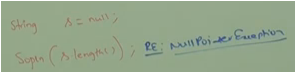 String s = null;
Sopln (s.length()); RE: NullPointerException